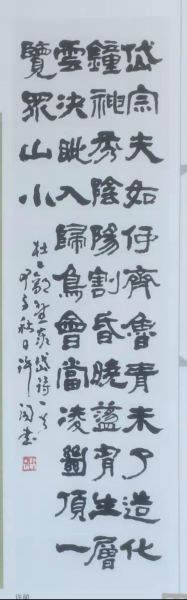 岱宗夫如何齊魯青未了造化
鐘神秀陰陽割昏曉盪胷生層
雲決眦入歸鳥會當凌絕頂一
覽眾山小
杜工部望嶽詩
秋日許書